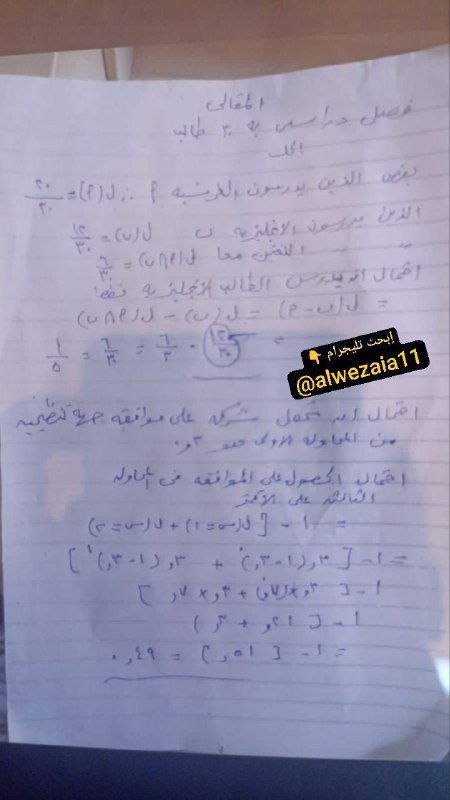 المقالى
فصل دراسى به ٣٠ طالب
الحل
بفرض الذين يدرسون الفرنسية P ∴ ل(P) = ٢٠/٣٠
الذين يدرسون الانجليزية ب ل(ب) = ١٢/٣٠
〃 〃 اللغتين معا ل(P∩ب) = ٦/٣٠
احتمال ان يدرس الطالب الانجليزية فقط
= ل(ب-P) = ل(ب) - ل(P∩ب)
= ١٢/٣٠ - ٦/٣٠ = ٦/٣٠ = ١/٥
إبحث تليجرام 👇
@alwezaia11
احتمال ان تحصل شركة على موافقة جهة تنظيمية
من المحاوله الاولى هو ٣و٠
احتمال الحصول على الموافقه فى المحاوله
الثالثة على الأكثر
= ١ - [ل(س=١) + ل(س=٢)
= ١ - [٣و(١-٣و)٠ + ٣و(١-٣و)١]
١ - [٣و + ٣و × ٧و]
١ - [٢١و + ٣و]
= ١ - [٥١و] = ٤٩و٠